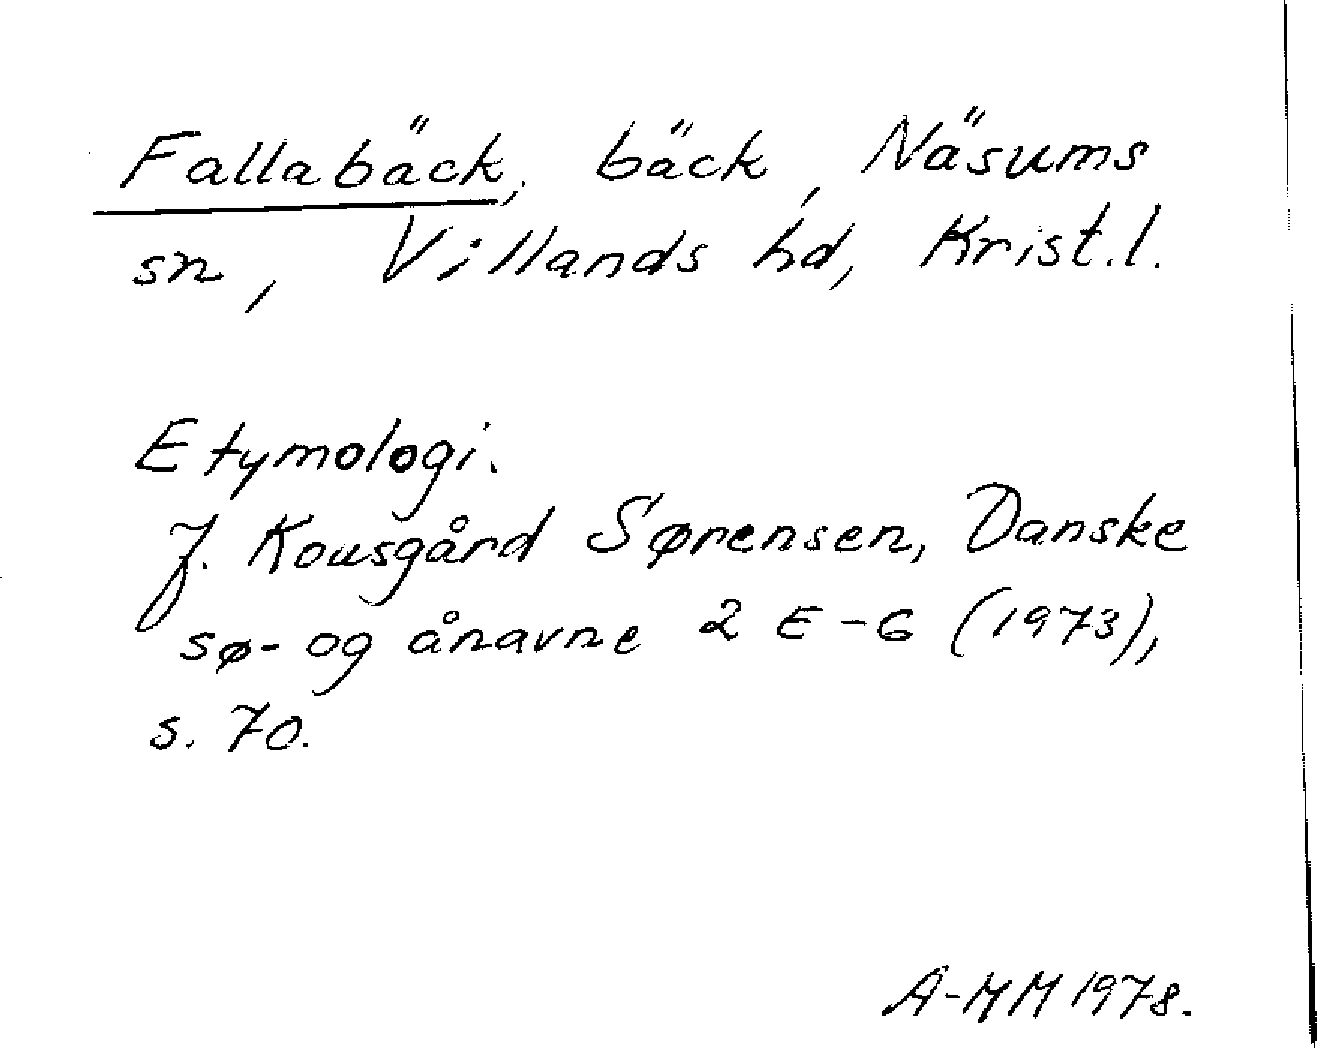 Fallabäck, bäck, Näsums
sn, Villands hd, Krist.l.
Etymologi.
J. Kousgård Sørensen, Danske
sø- og ånavne 2 E-G (1973),
s. 70.
A-MM 1978.